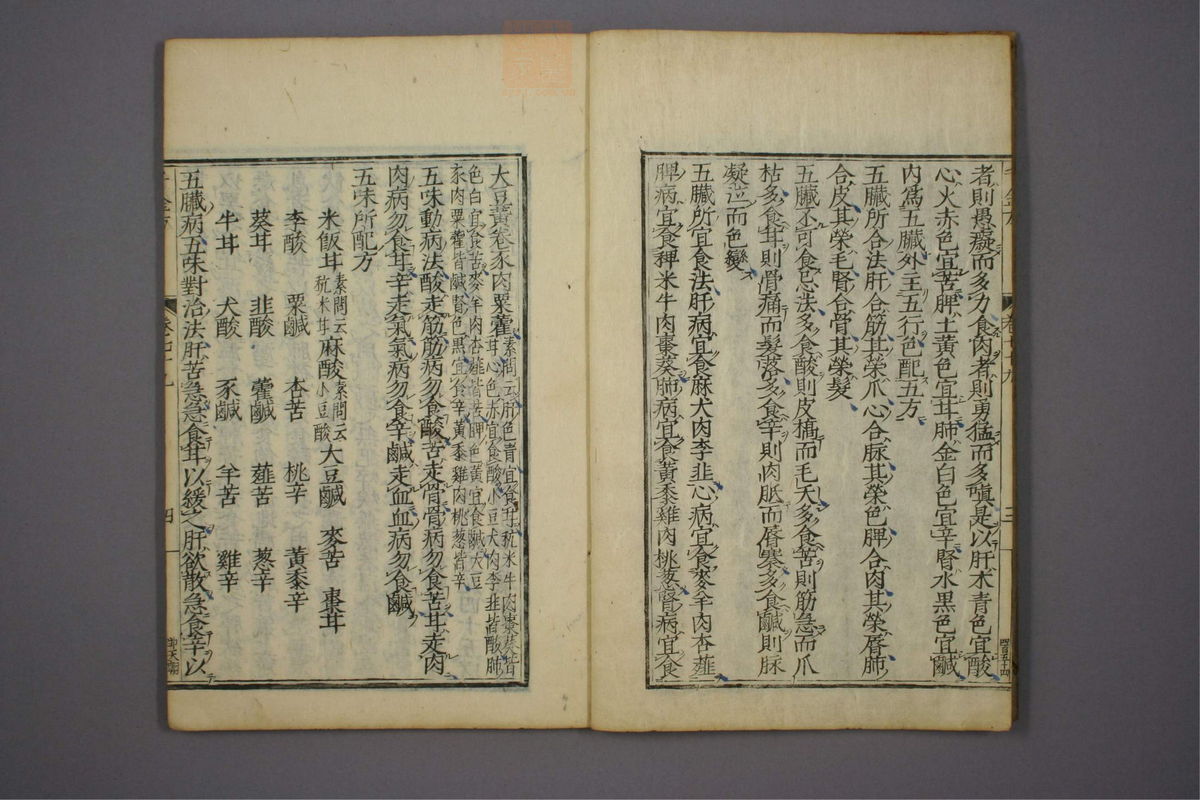 者則愚癡而多力食肉者則勇猛而多嗔是以肝木青色宜酸
心火赤色宜苦脾土黃色宜甘肺金白色宜辛腎水黑色宜鹹
內爲五臟外主五行色配五方
五臟所合法肝合筋其榮爪心合脉其榮色脾合肉其榮脣肺
合皮其榮毛腎合骨其榮髮
五臟不可食忌法多食酸則皮槁而毛夭多食苦則筋急而爪
枯多食甘則骨痛而髮落多食辛則肉胝而脣褰多食鹹則脉
凝泣而色變
五臟所宜食法肝病宜食麻犬肉李韭心病宜食麥羊肉杏薤
脾病宜食稗米牛肉棗葵肺病宜食黃黍雞肉桃葱腎病宜食
三
大豆黃卷豕肉粟藿素問云肝色青宜食甘秔米牛肉棗葵皆
甘心色赤宜食酸小豆犬肉李韭皆酸肺
色白宜食苦麥羊肉杏薤皆苦脾色黃宜食鹹大豆
豕肉粟藿皆鹹腎色黑宜食辛黃黍雞肉桃葱皆辛
五味動病法酸走筋筋病勿食酸苦走骨骨病勿食苦甘走肉
肉病勿食甘辛走氣氣病勿食辛鹹走血血病勿食鹹
五味所配方
米飯甘素問云秔米甘 麻酸素問云小豆酸 大豆鹹 麥苦 棗甘
李酸 栗鹹 杏苦 桃辛 黃黍辛
葵甘 韭酸 藿鹹 薤苦 葱辛
牛甘 犬酸 豕鹹 羊苦 雞辛
五臟病五味對治法肝苦急急食甘以緩之肝欲散急食辛以
四